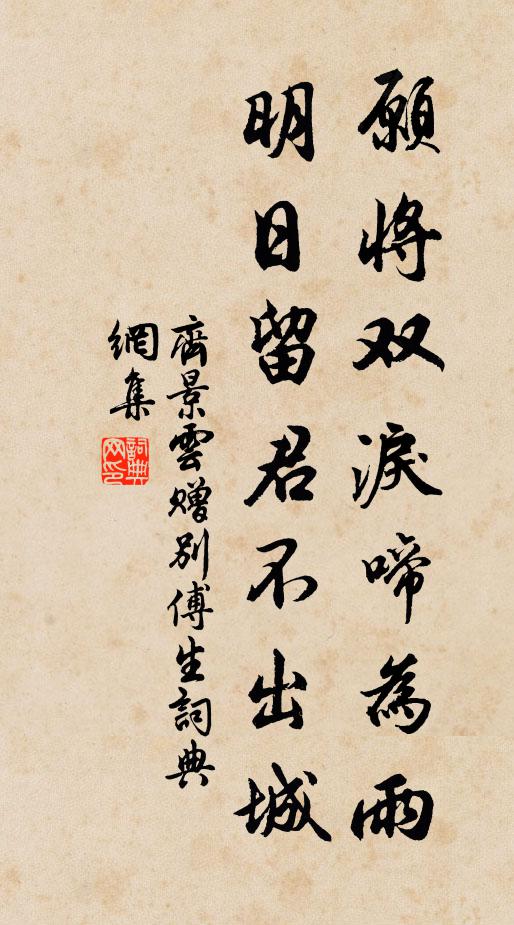 願將双淚啼為雨
明日留君不出城
齊景雲贈別傅生詞典
網集
詞典
网印